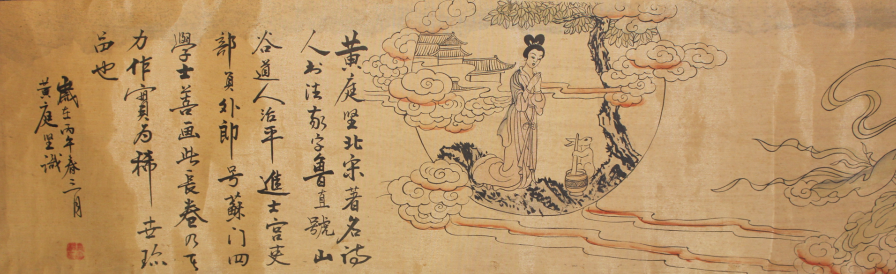 黄庭坚北宋著名诗
人书法家字鲁直號山
谷道人治平進士官吏
部員外郎号蘇门四
學士善画此長卷乃
力作實为稀世珍
品也
歲在丙午春三月
黄庭坚識